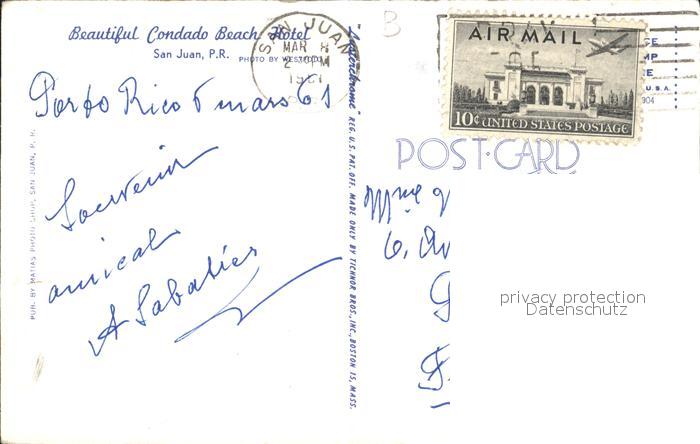 Beautiful Condado Beach Hotel
San Juan, P.R. PHOTO BY WESTWOOD
Porto Rico 6 mars 61
Souvenir
amical
A Sabatier
PUB. BY MATIAS PHOTO SHOP, SAN JUAN, P. R.
"Lusterchrome" REG. U.S. PAT. OFF. MADE ONLY BY TICHNOR BROS., INC., BOSTON 15, MASS.
SAN JUAN
MAR 8
2 PM
1961
B
AIR MAIL
10¢ UNITED STATES POSTAGE
U.S.A.
904
POST-CARD
Mme
6, Av
privacy protection
Datenschutz